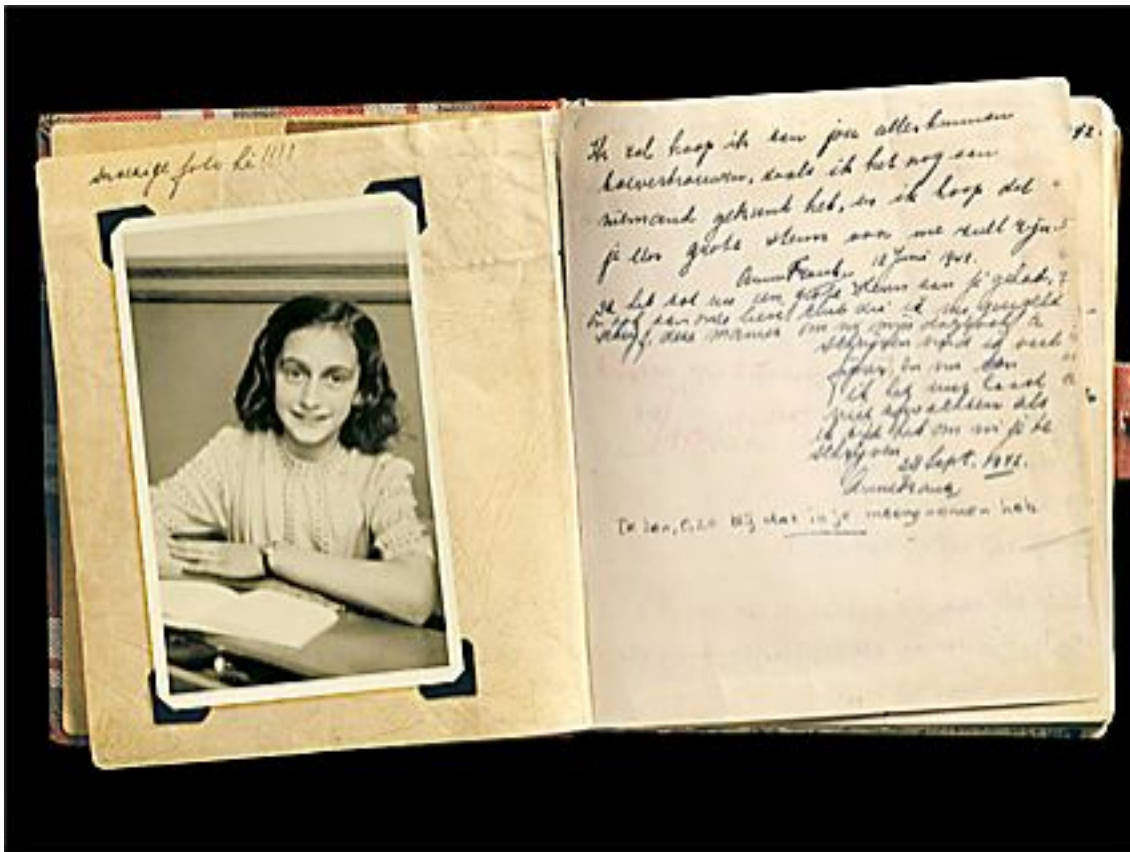 snoezige foto hè!!!!
Ik zal hoop ik aan jou alles kunnen
toevertrouwen, zoals ik het nog aan
niemand gekund heb, en ik hoop dat
je een grote steun voor me zult zijn.
Anne Frank. 12 Juni 1942.
Ik heb tot nu een grote steun aan je gehad,
en ook aan onze lieve club die ik nu geregeld
schrijf, deze manier om in mijn dagboek te
schrijven vind ik veel
fijner en nu kan
ik het uur haast
niet afwachten als
ik tijd heb om in je te
schrijven
28 Sept. 1942.
Anne Frank
Ik ben, o, zo blij dat ik je meegenomen heb
42.